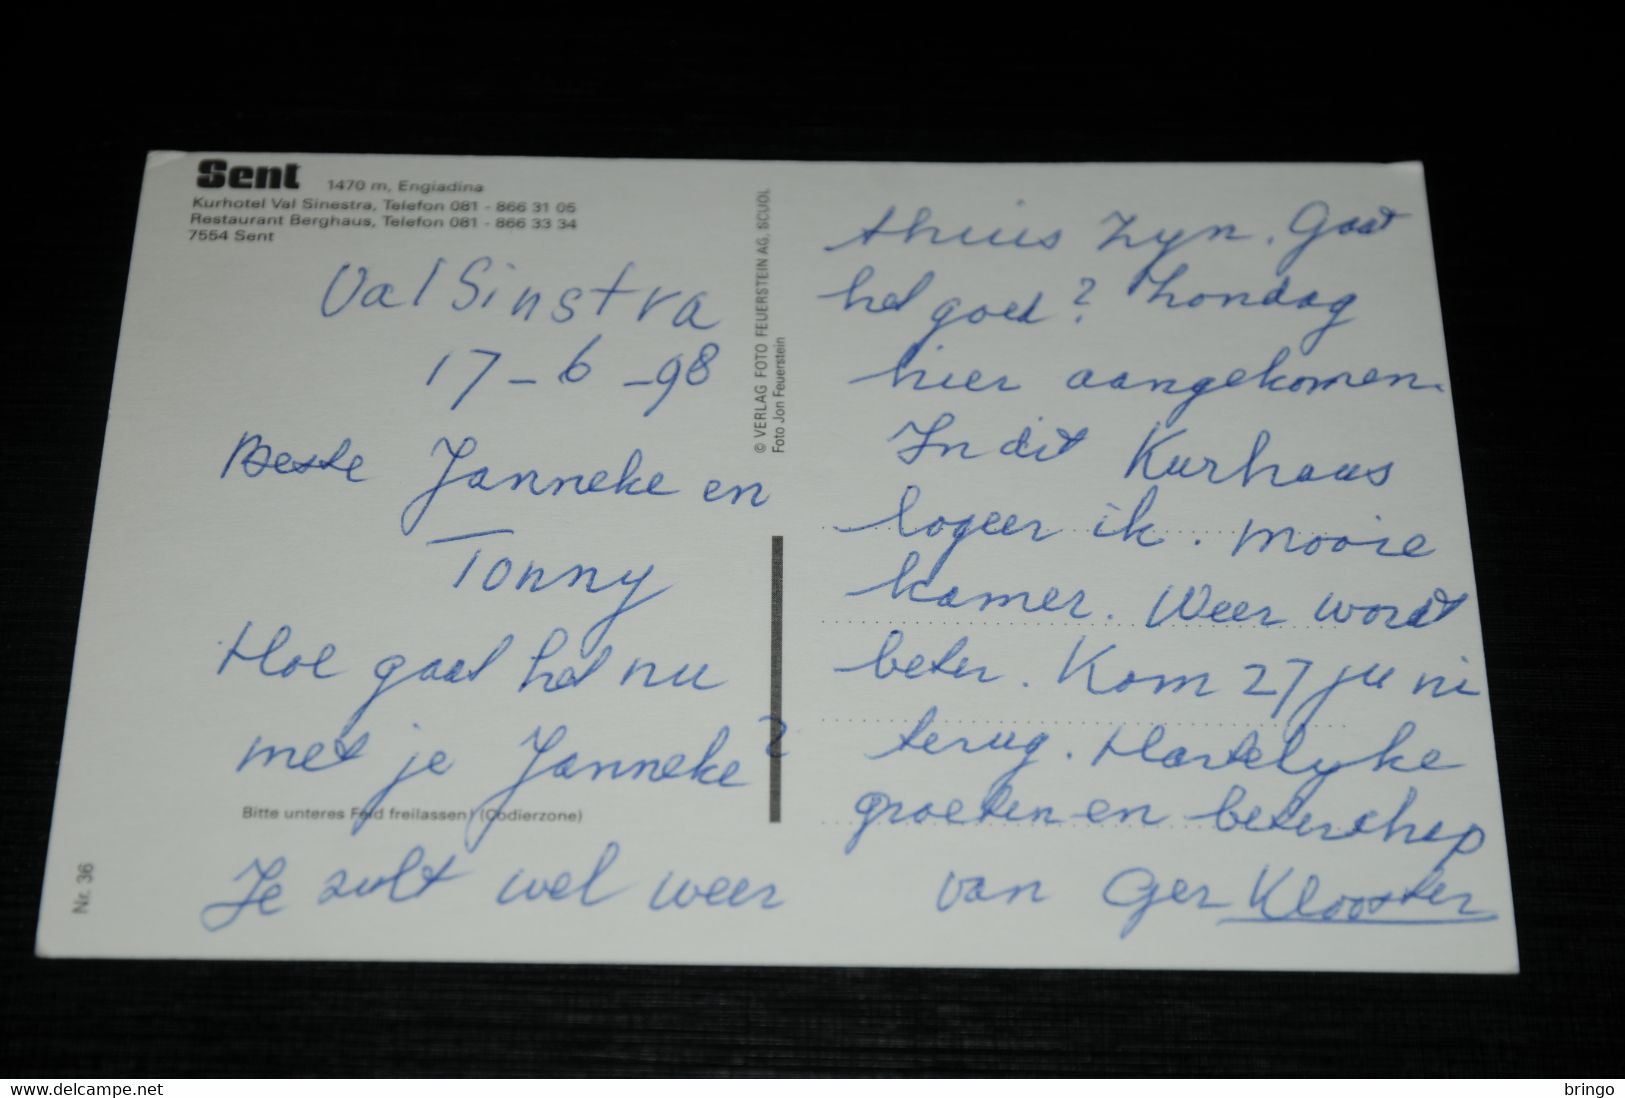 Sent 1470 m, Engiadina
Kurhotel Val Sinestra, Telefon 081 - 866 31 05
Restaurant Berghaus, Telefon 081 - 866 33 34
7554 Sent
Val Sinstra
17-6-98
Beste Janneke en
Tonny
Hoe gaat het nu
met je Janneke?
Bitte unteres Feld freilassen! (Codierzone)
Je zult wel weer
Nr. 36
© VERLAG FOTO FEUERSTEIN AG, SCUOL
Foto Jon Feuerstein
thuis zyn. Gaat
het goed? Zondag
hier aangekomen.
In dit Kurhaus
logeer ik. Mooie
kamer. Weer wordt
beter. Kom 27 juni
terug. Hartelyke
groeten en beterschap
van Ger Klooster
delcampe.net
bringo